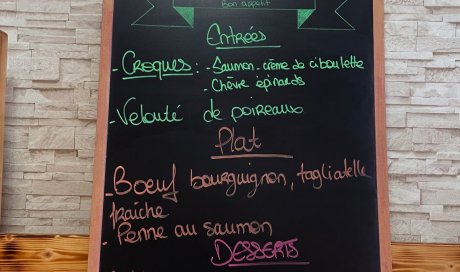 Bon appétit
Entrées
- Croques : - Saumon - crème de ciboulette
- Chèvre épinards
- Velouté de poireaux
Plat
- Bœuf bourguignon, tagliatelle
fraîche
- Penne au saumon
DESSERTS